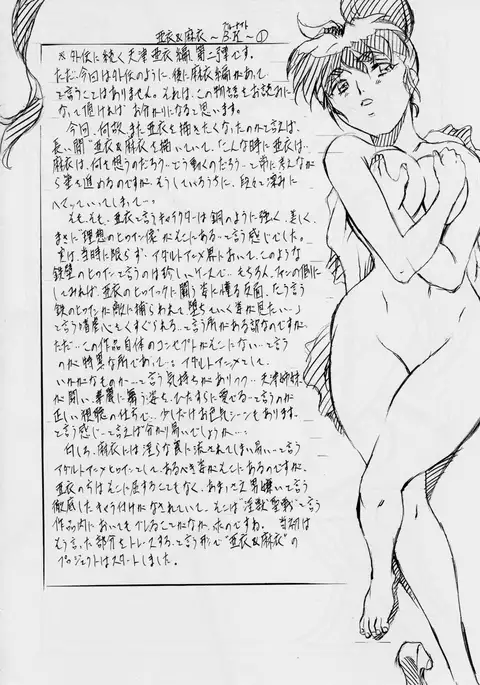 亜衣&麻衣 ～B.K～ ①
※外伝に続く天津亜衣編、第二弾です。
ただ…今回は外伝のように、後に麻衣編があって
…て言うことはありません。それは、この物語をお読みに
なって頂ければお分かりになると思います。
今回、何故、また亜衣を描きたくなったのかて言えば、
長い間“亜衣&麻衣”を描いていて、こんな時に亜衣は…
麻衣は、何を想うのだろう…どう動くのだろう…と常に考えながら
筆を進めるのですが、そうしているうちに、段々と深みに
ハマっていってしまって…。
そもそも、亜衣て言うキャラクターは鋼のように強く、美しく、
まさに“理想のヒロイン像”がそこにある…て言う感じでした。
当時に限らず、アダルトアニメ界において、このような
鉄壁のヒロインて言うのは珍しいケースで…もちろん、ファンの側に
してみれば、亜衣のヒロイックに闘う姿に憧る反面、
鉄のヒロインが敵に捕らわれて堕ちていく姿が見たい…」
て言う暗黒心をくすぐられる…て言う所がある訳なのですが、
ただ…この作品自体のコンセプトがそこにない…て言う
のが特異な所であって…アダルトアニメとして、
いかがなものか…て言う気持ちがありつつ…天津姉妹
が闘い、華麗に舞う姿を、ひたすらに愛でる…て言うのが
正しい視聴の仕方で…少しだけお色気シーンもあります。
て言う感じ…て言えば分かり易いでしょうか…。
むしろ、麻衣には淫らな罠に流されてしまい易い…て言う
アダルトアニメヒロインとしてあるべき姿がそこにあるのですが、
亜衣の方はそこに屈することもなく、あまつさえ男嫌いて言う
徹底したキャラ付けがなされていて、そこは“淫獣聖戦”て言う
作品内においてもブレることがなかったのですね。当初は
そう言った部分をトレースする…て言う形で“亜衣&麻衣”の
プロジェクトはスタートしました。